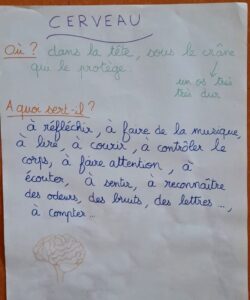 CERVEAU
Où ? dans la tête, sous le crâne
qui le protège.
un os très
très dur
A quoi sert-il ?
à réfléchir, à faire de la musique,
à lire, à courir, à contrôler le
corps, à faire attention, à
écouter, à sentir, à reconnaître
des odeurs, des bruits, des lettres ...,
à compter ...